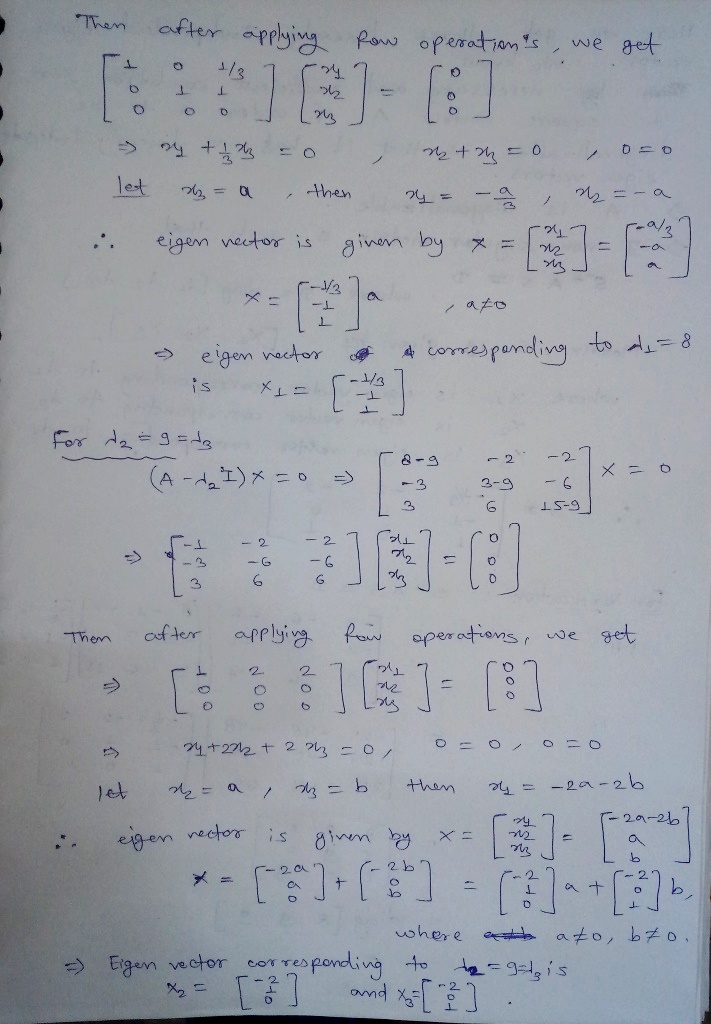 Then after applying Row operation's, we get
[1 0 1/3; 0 1 1; 0 0 0] [x1; x2; x3] = [0; 0; 0]
⇒ x1 + 1/3 x3 = 0 , x2 + x3 = 0 , 0 = 0
let x3 = a , then x1 = -a/3 , x2 = -a
∴ eigen vector is given by x = [x1; x2; x3] = [-a/3; -a; a]
x = [-1/3; -1; 1] a , a≠0
⇒ eigen vector corresponding to λ1 = 8
is x1 = [-1/3; -1; 1]
For λ2 = 9 = λ3
(A - λ2 I) x = 0 ⇒ [8-9 -2 -2; -3 3-9 -6; 3 6 15-9] x = 0
⇒ [-1 -2 -2; -3 -6 -6; 3 6 6] [x1; x2; x3] = [0; 0; 0]
Then after applying Row operations, we get
⇒ [1 2 2; 0 0 0; 0 0 0] [x1; x2; x3] = [0; 0; 0]
⇒ x1 + 2x2 + 2x3 = 0, 0 = 0, 0 = 0
let x2 = a , x3 = b then x1 = -2a-2b
∴ eigen vector is given by x = [x1; x2; x3] = [-2a-2b; a; b]
x = [-2a; a; 0] + [-2b; 0; b] = [-2; 1; 0] a + [-2; 0; 1] b,
where a≠0, b≠0.
⇒ Eigen vector corresponding to λ2 = 9 = λ3 is
x2 = [-2; 1; 0] and x3 = [-2; 0; 1].